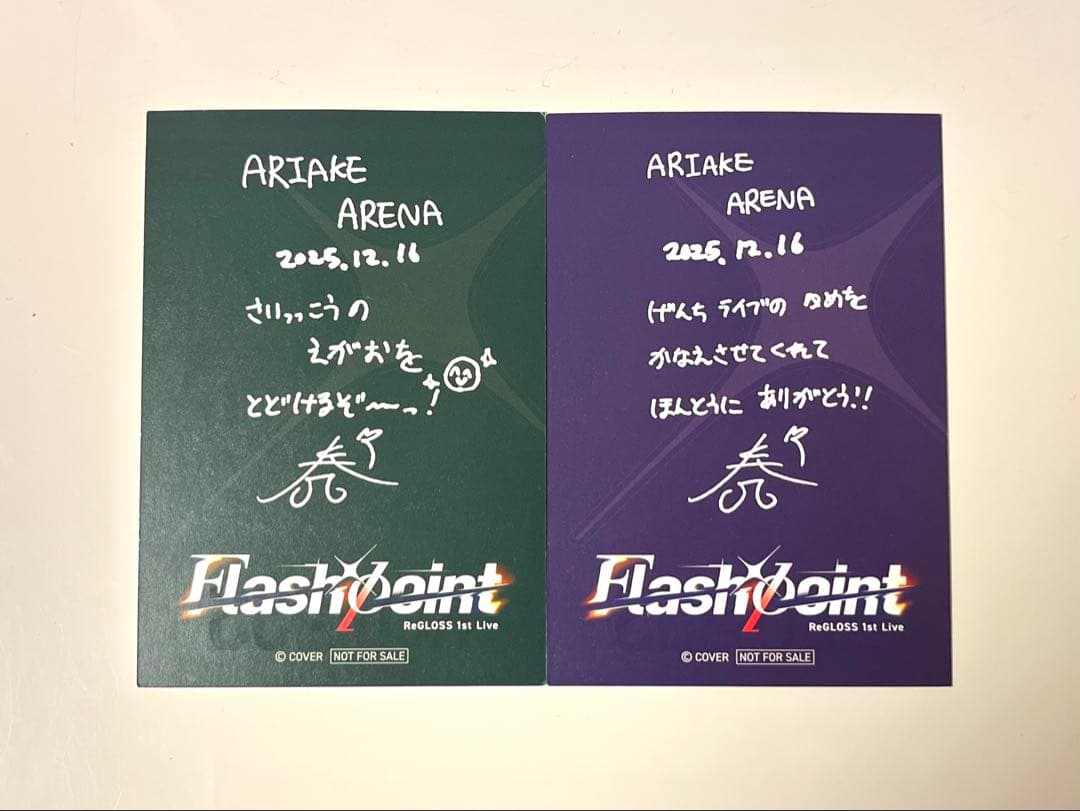 ARIAKE
ARENA
2025.12.16
さいっっこうの
えがおを
とどけるぞ〜っ!
FlashPoint
ReGLOSS 1st Live
© COVER NOT FOR SALE
ARIAKE
ARENA
2025.12.16
げんち ライブの ゆめを
かなえさせてくれて
ほんとうに ありがとう!!
FlashPoint
ReGLOSS 1st Live
© COVER NOT FOR SALE